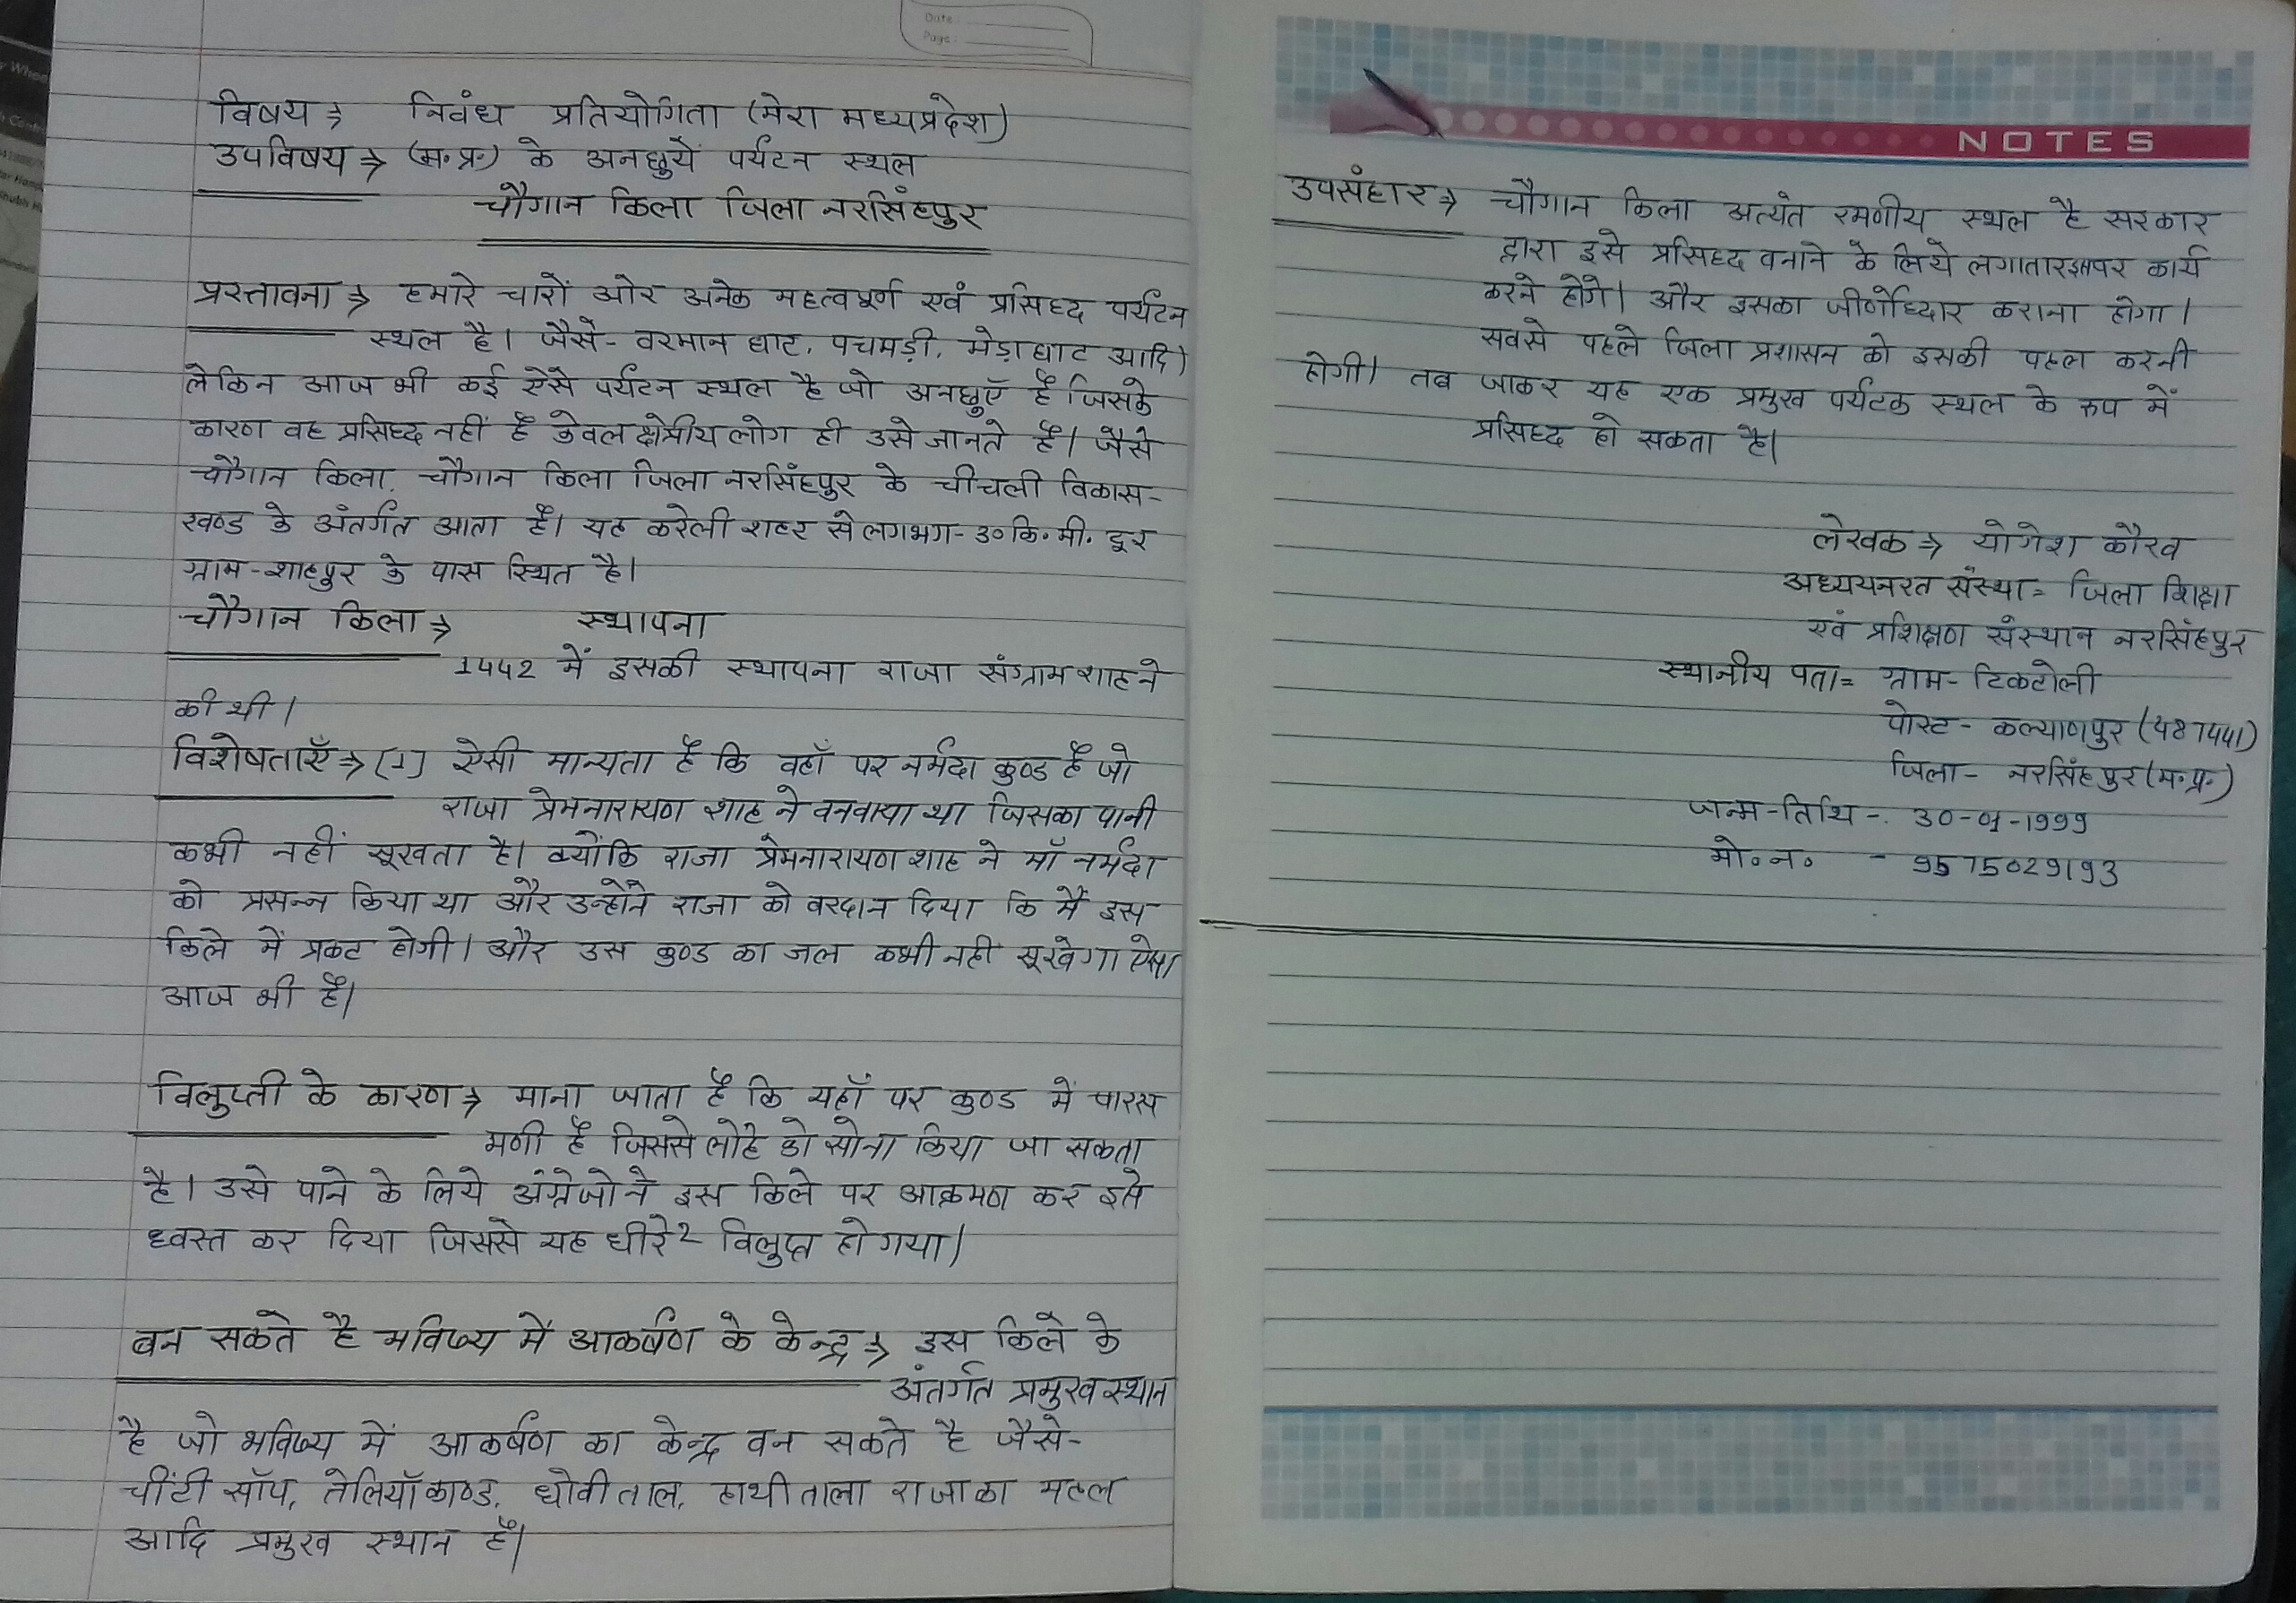 Date :
Page :
विषय ⇒ निवंध प्रतियोगिता (मेरा मध्यप्रदेश)
उपविषय ⇒ (म॰प्र॰) के अनछुयें पर्यटन स्थल
चौगान किला जिला नरसिंहपुर
प्रस्तावना ⇒ हमारे चारों ओर अनेक महत्वपूर्ण एवं प्रसिध्द पर्यटन
स्थल है। जैसे- वरमान घाट, पचमड़ी, भेड़ाघाट आदि।
लेकिन आज भी कई ऐसे पर्यटन स्थल है जो अनछुएँ हैं जिसके
कारण वह प्रसिध्द नहीं हैं केवल क्षेत्रीय लोग ही उसे जानते हैं। जैसे
चौगान किला, चौगान किला जिला नरसिंहपुर के चीचली विकास-
खण्ड के अंतर्गत आता हैं। यह करेली शहर से लगभग- 30 कि॰मी॰ दूर
ग्राम-शाहपुर के पास स्थित है।
चौगान किला ⇒ स्थापना
1442 में इसकी स्थापना राजा संग्रामशाह ने
की थी।
विशेषताएँ ⇒ [1] ऐसी मान्यता हैं कि वहाँ पर नर्मदा कुण्ड हैं जो
राजा प्रेमनारायण शाह ने वनवाया था जिसका पानी
कभी नहीं सूखता है। क्योंकि राजा प्रेमनारायण शाह ने माँ नर्मदा
को प्रसन्न किया था और उन्होंने राजा को वरदान दिया कि मैं इस
किले में प्रकट होगी। और उस कुण्ड का जल कभी नहीं सूखेगा ऐसा
आज भी हैं।
विलुप्ती के कारण ⇒ माना जाता हैं कि यहाँ पर कुण्ड में पारस
मणी हैं जिससे लोहे को सोना किया जा सकता
है। उसे पाने के लिये अंग्रेजो ने इस किले पर आक्रमण कर इसे
ध्वस्त कर दिया जिससे यह धीरे2 विलुप्त हो गया।
बन सकते है भविष्य में आकर्षण के केन्द्र ⇒ इस किले के
अंतर्गत प्रमुख स्थान
है जो भविष्य में आकर्षण का केन्द्र वन सकते है जैसे-
चींटी साँप, तेलियाँ काण्ड, धोवी ताल, हाथी ताला राजा का महल
आदि प्रमुख स्थान हैं।
NOTES
उपसंहार ⇒ चौगान किला अत्यंत रमणीय स्थल है सरकार
द्वारा इसे प्रसिध्द वनाने के लिये लगातार इसपर कार्य
करने होंगे। और इसका जीर्णोध्दार कराना होगा।
सवसे पहले जिला प्रशासन को इसकी पहल करनी
होगी। तव जाकर यह एक प्रमुख पर्यटक स्थल के रूप में
प्रसिध्द हो सकता है।
लेखक ⇒ योगेश कौरव
अध्ययनरत संस्था = जिला शिक्षा
एवं प्रशिक्षण संस्थान नरसिंहपुर
स्थानीय पता = ग्राम- टिकटोली
पोस्ट- कल्याणपुर (487441)
जिला- नरसिंहपुर (म॰प्र॰)
जन्म-तिथि -. 30-01-1999
मो॰न॰ - 9575029193